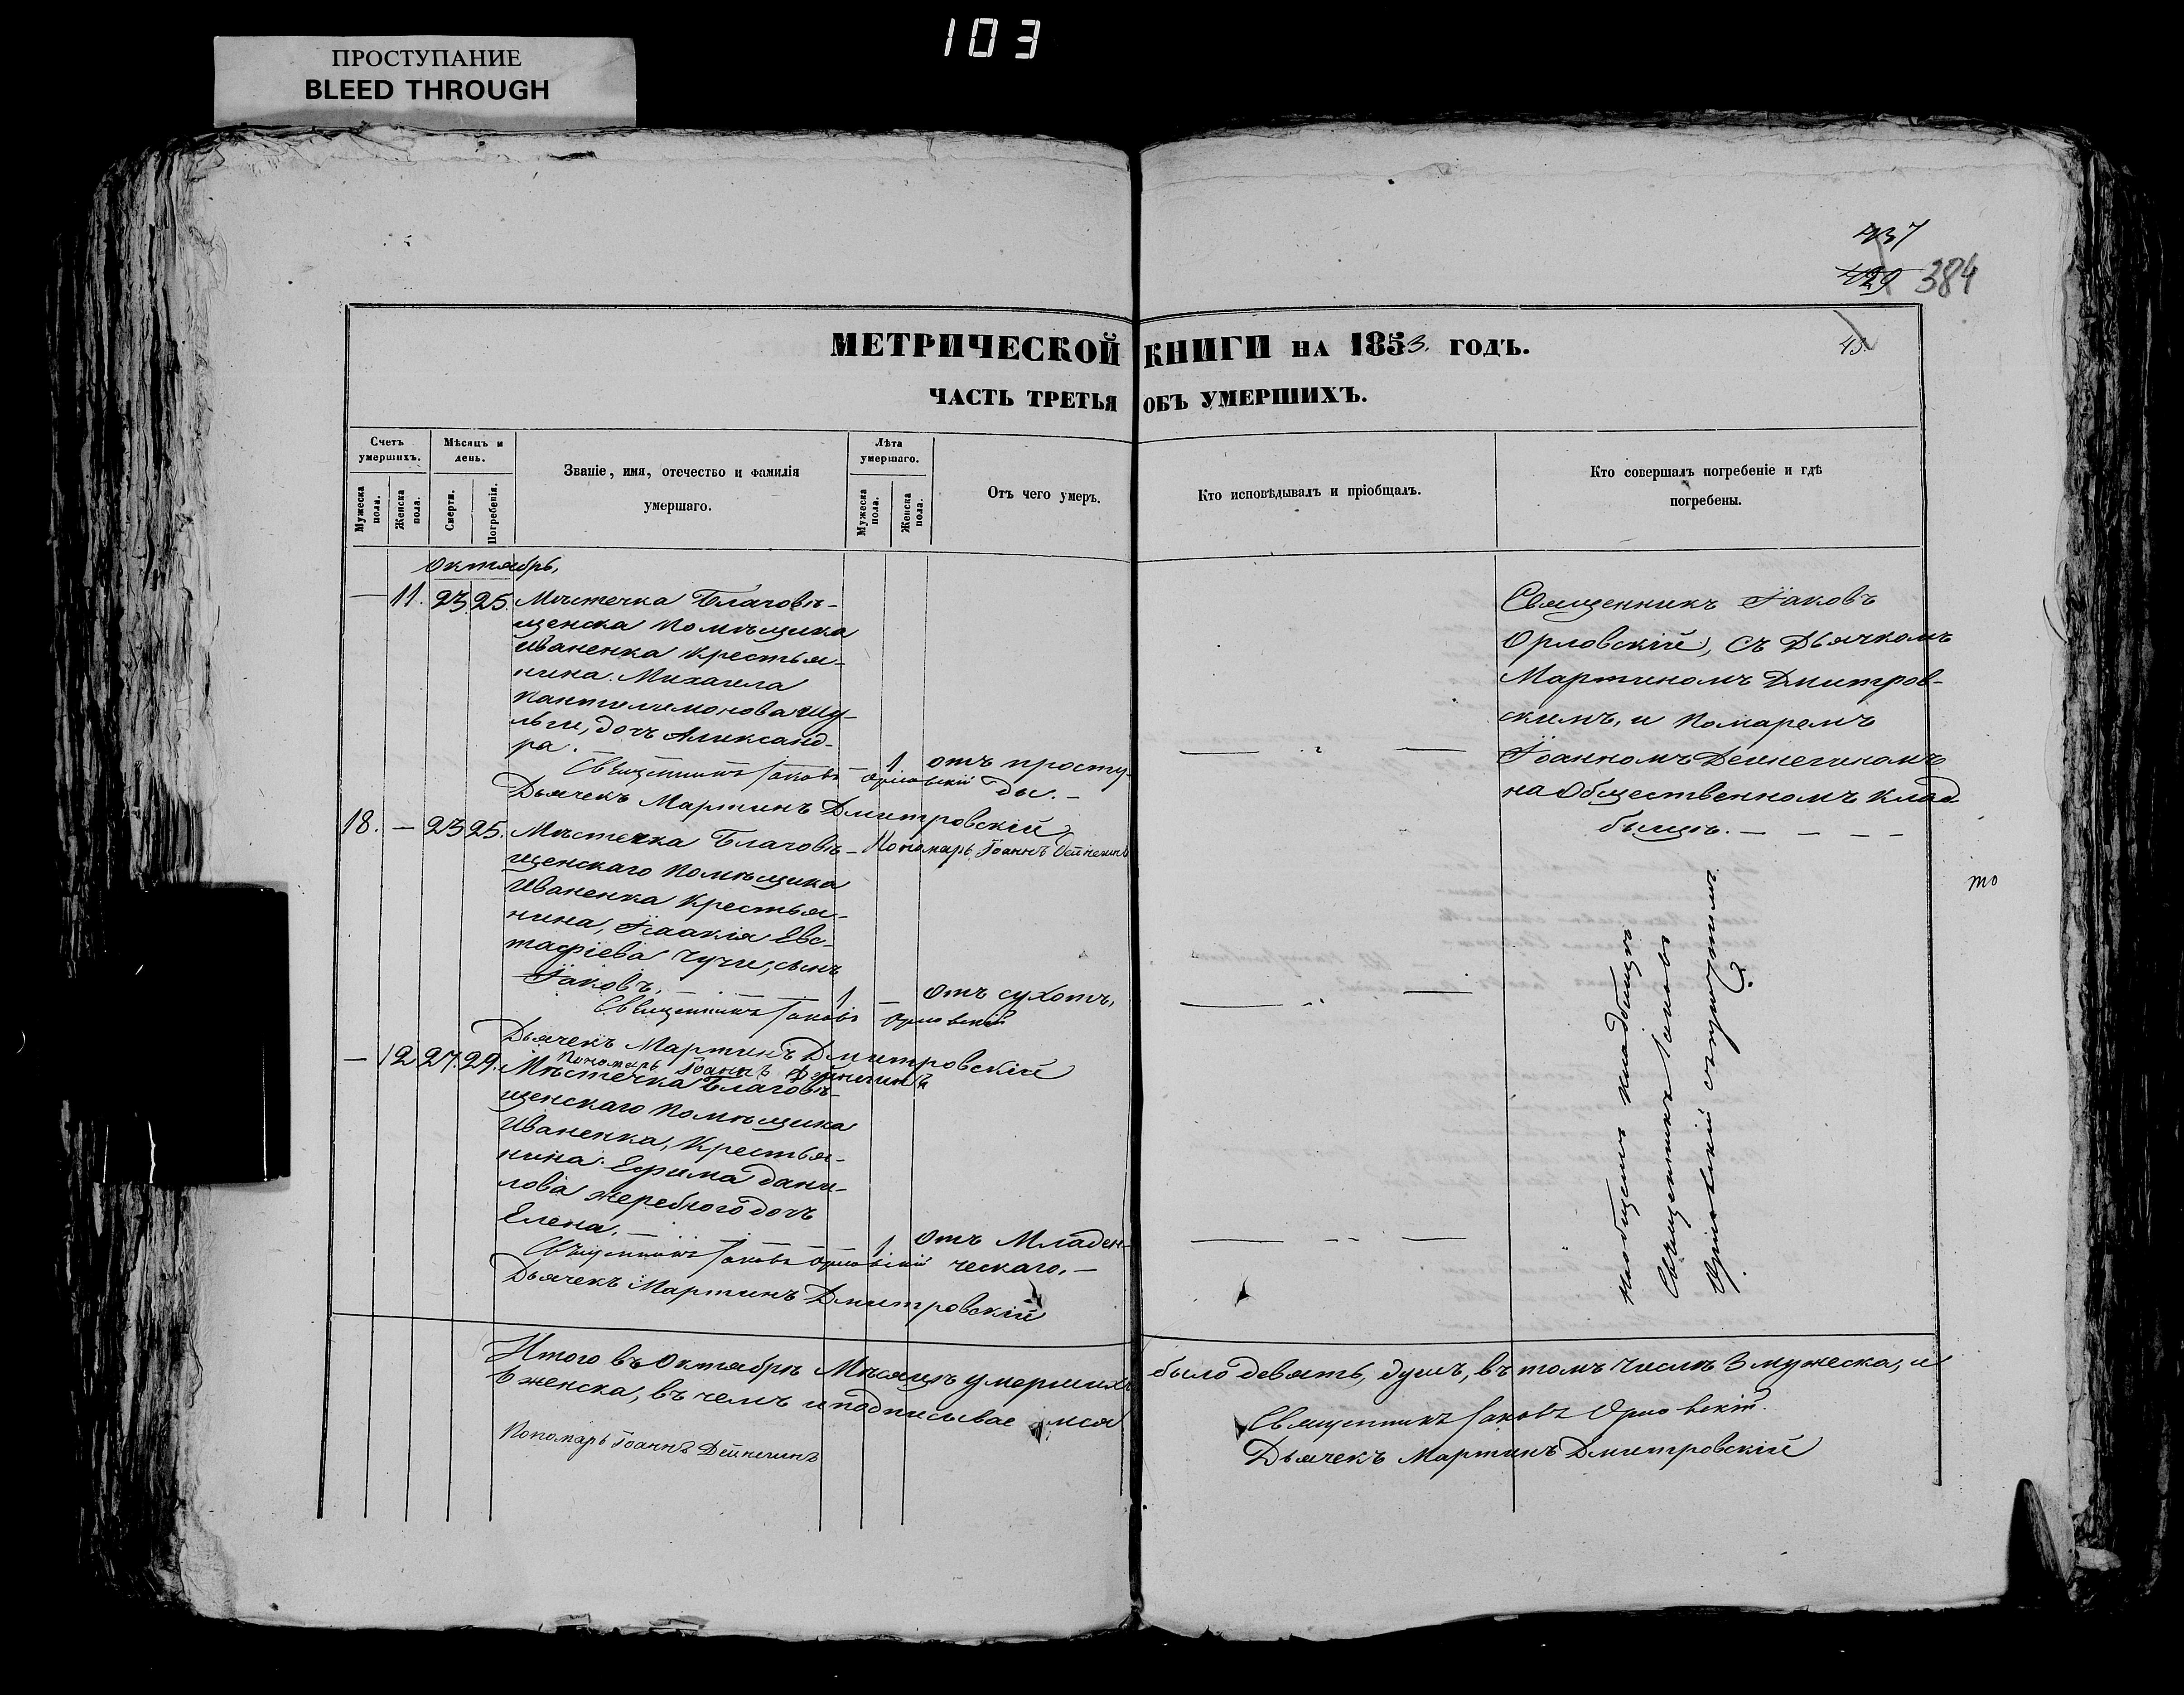 103
ПРОСТУПАНИЕ
BLEED THROUGH
437
429 384
43.
МЕТРИЧЕСКОЙ КНИГИ НА 1853. ГОДЪ.
ЧАСТЬ ТРЕТЬЯ ОБЪ УМЕРШИХЪ.
Счетъ умершихъ.
Мужеска пола.
Женска пола.
Мѣсяцъ и день.
Смерти.
Погребенія.
Званіе, имя, отечество и фамилія
умершаго.
Лѣта умершаго.
Мужеска пола.
Женска пола.
Отъ чего умеръ.
Кто исповѣдывалъ и пріобщалъ.
Кто совершалъ погребеніе и гдѣ
погребены.
Октябрь,
— 11. 23. 25. Мѣстечка Благовѣ-
щенска помѣщика
Иваненка крестья-
нина Михаила
Пантелимонова Шу-
льги, дочь Александ-
ра. — 1 отъ просту-
ды. —
Священникъ Іаковъ Орловскій
Дьячекъ Мартинъ Дмитровскій
Пономарь Іоаннъ Дейнекинъ
Священникъ Іаковъ
Орловскій, съ Дьячкомъ
Мартиномъ Дмитров-
скимъ, и Помаремъ
Іоанномъ Дейнегиномъ
на Общественномъ клад
бищѣ. — — — —
18. — 23 25. Мѣстечка Благовѣ-
щенскаго помѣщика
Иваненка крестья-
нина, Іаакія Евс-
тафіева Чучи, сынъ
Іаковъ. — 1 — Отъ сухотъ,
Священникъ Іаковъ Орловскій
Дьячекъ Мартинъ Дмитровскій
Пономарь Іоаннъ Дейнекинъ
— 12 27. 29. Мѣстечка Благовѣ-
щенскаго помѣщика
Иваненка, крестья-
нина Ефима Дани-
лова Жеребного дочь
Елена, — 1 Отъ Младен-
ческаго, —
Священникъ Іаковъ Орловскій
Дьячекъ Мартинъ Дмитровскій
кладбищѣ
Священникъ Іаковъ
Орловскій
то
Итого въ Октябрѣ Мѣсяцѣ умершихъ было девять, душъ, въ томъ числѣ 3 мужеска, и
6 женска, въ чемъ и подписываемся
Священникъ Іаковъ Орловскій.
Пономарь Іоаннъ Дейнегинъ
Дьячекъ Мартинъ Дмитровскій